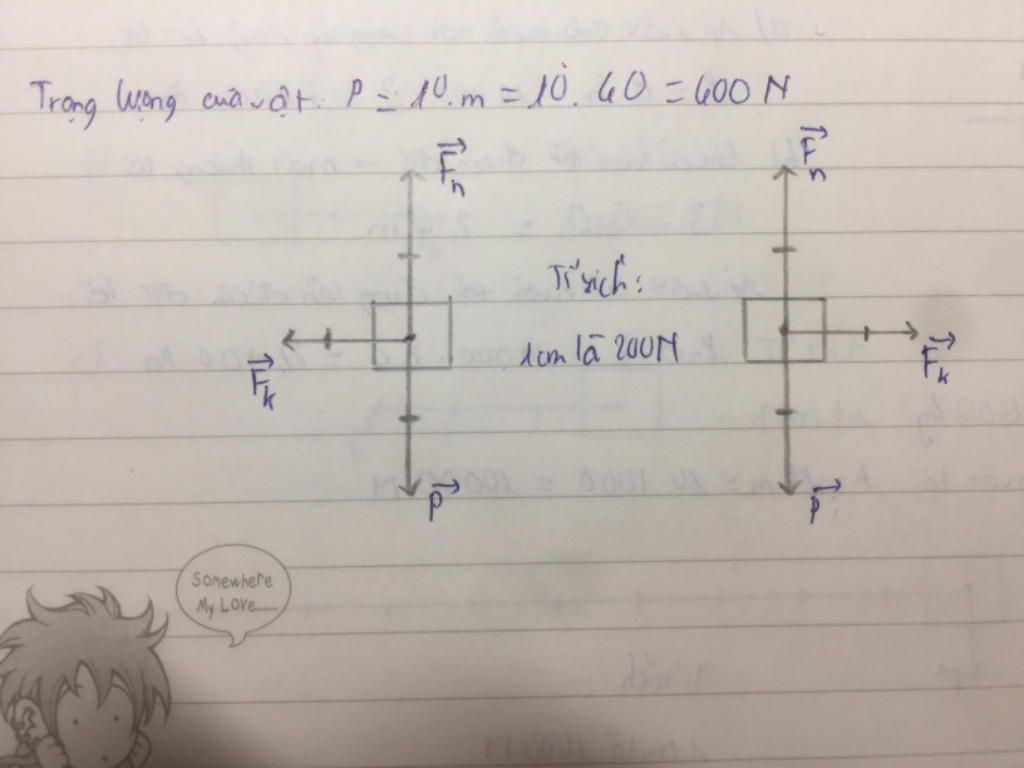 Trọng lượng của vật: P = 10.m = 10.40 = 400 N
Fn Fn
Tỉ xích:
1cm là 200N
Fk Fk
P P
Somewhere
My Love......